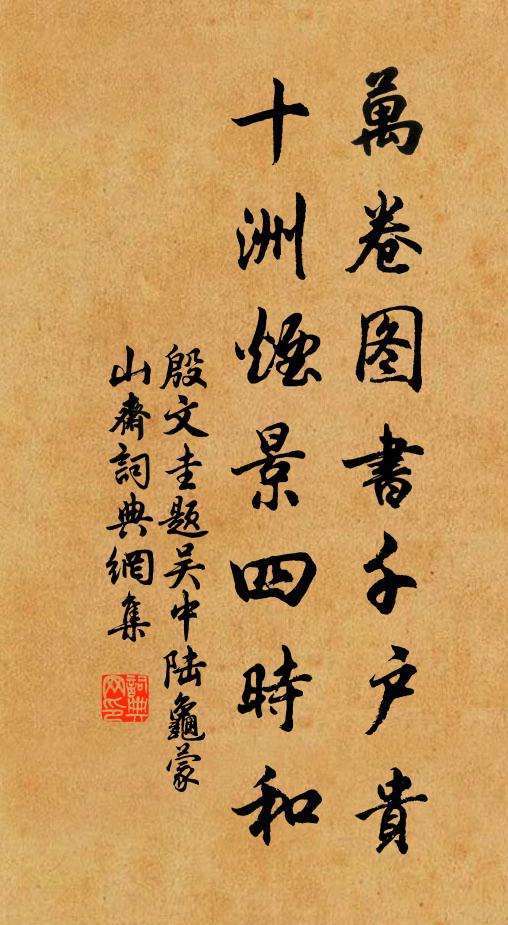 萬卷图書千户貴
十洲煙景四時和
殷文圭题吴中陆龜蒙
山齋詞典網集
詞典网印